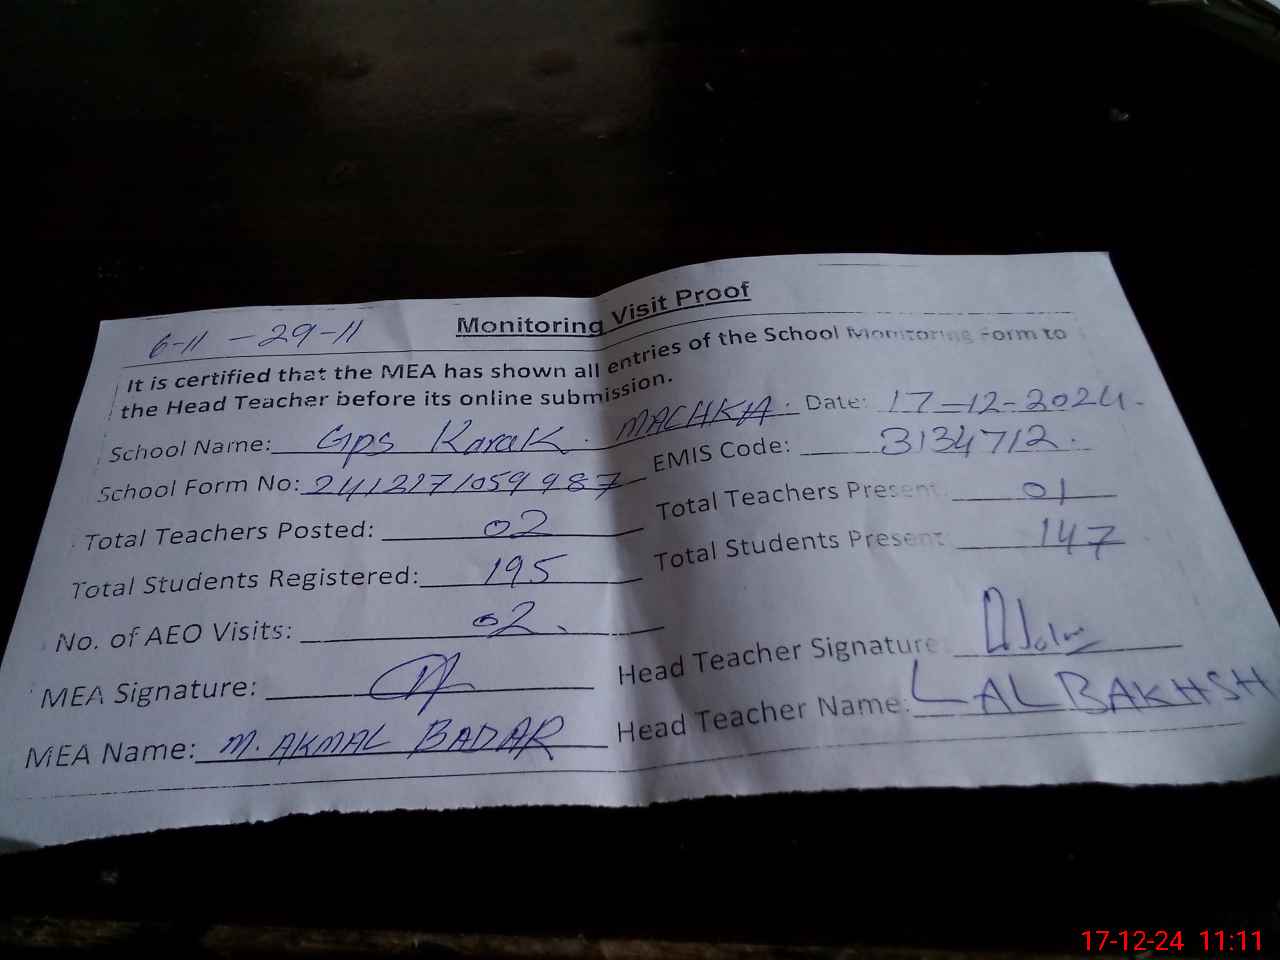 Monitoring Visit Proof
6-11 - 29-11
It is certified that the MEA has shown all entries of the School Monitoring Form to
the Head Teacher before its online submission.
School Name: Gps Karak. MACHKA. Date: 17-12-2024.
School Form No: 2412171059987 EMIS Code: 3134712.
Total Teachers Posted: 02 Total Teachers Present: 01
Total Students Registered: 195 Total Students Present: 147
No. of AEO Visits: 02.
MEA Signature: Head Teacher Signature:
MEA Name: M. AKMAL BADAR Head Teacher Name: LAL BAKHSH
17-12-24 11:11